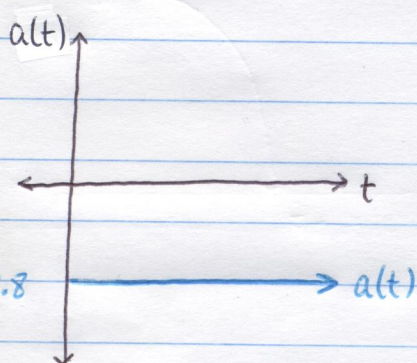 a(t)
t
.8 a(t)